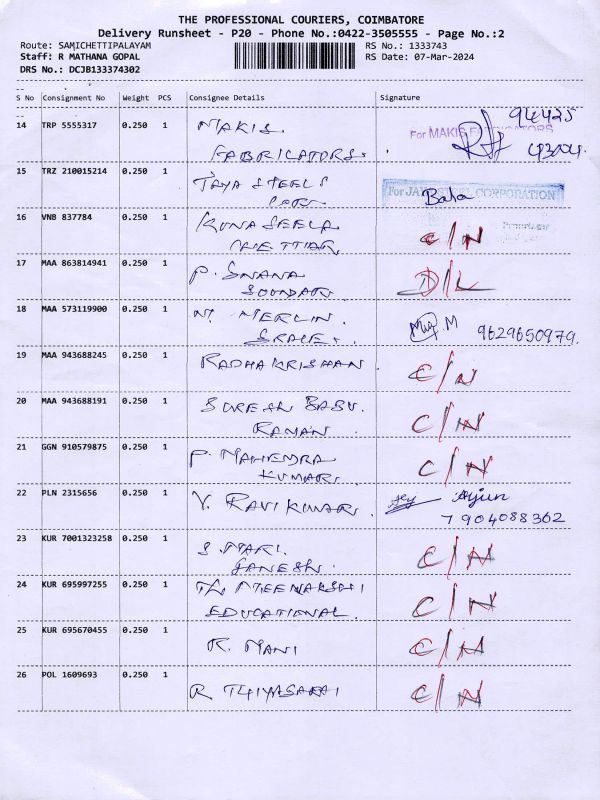 THE PROFESSIONAL COURIERS, COIMBATORE
Delivery Runsheet - P20 - Phone No.:0422-3505555 - Page No.:2
Route: SAMICHETTIPALAYAM
RS No.: 1333743
Staff: R MATHANA GOPAL
RS Date: 07-Mar-2024
DRS No.: DCJB133374302
S No Consignment No Weight PCS Consignee Details Signature
14 TRP 5555317 0.250 1 MAKIS
FABRICATORS.
For MAKIS FABRICATORS
94425
43004.
15 TRZ 210015214 0.250 1 JAYA STEELS
CORP.
For JAYA STEEL CORPORATION
Baba
Proprietor
16 VNB 837784 0.250 1 KUNASEELA
CHETTIAR C/N
17 MAA 863814941 0.250 1 P. GNANA
SOUNDARI D/L
18 MAA 573119900 0.250 1 N. MERLIN.
GRACE. M 9629650979.
19 MAA 943688245 0.250 1 RADHAKRISHAN C/N
20 MAA 943688191 0.250 1 SURESH BABU.
RAMAN. C/N
21 GGN 910579875 0.250 1 P. MAHENDRA
KUMAR. C/N
22 PLN 2315656 0.250 1 V. RAVIKUMAR. Arjun
7904088362
23 KUR 7001323258 0.250 1 S. MARI.
GANESH. C/N
24 KUR 695997255 0.250 1 TH MEENAKSHI
EDUCATIONAL. C/N
25 KUR 695670455 0.250 1 K. MANI C/N
26 POL 1609693 0.250 1 R THIYAGARAJ C/N